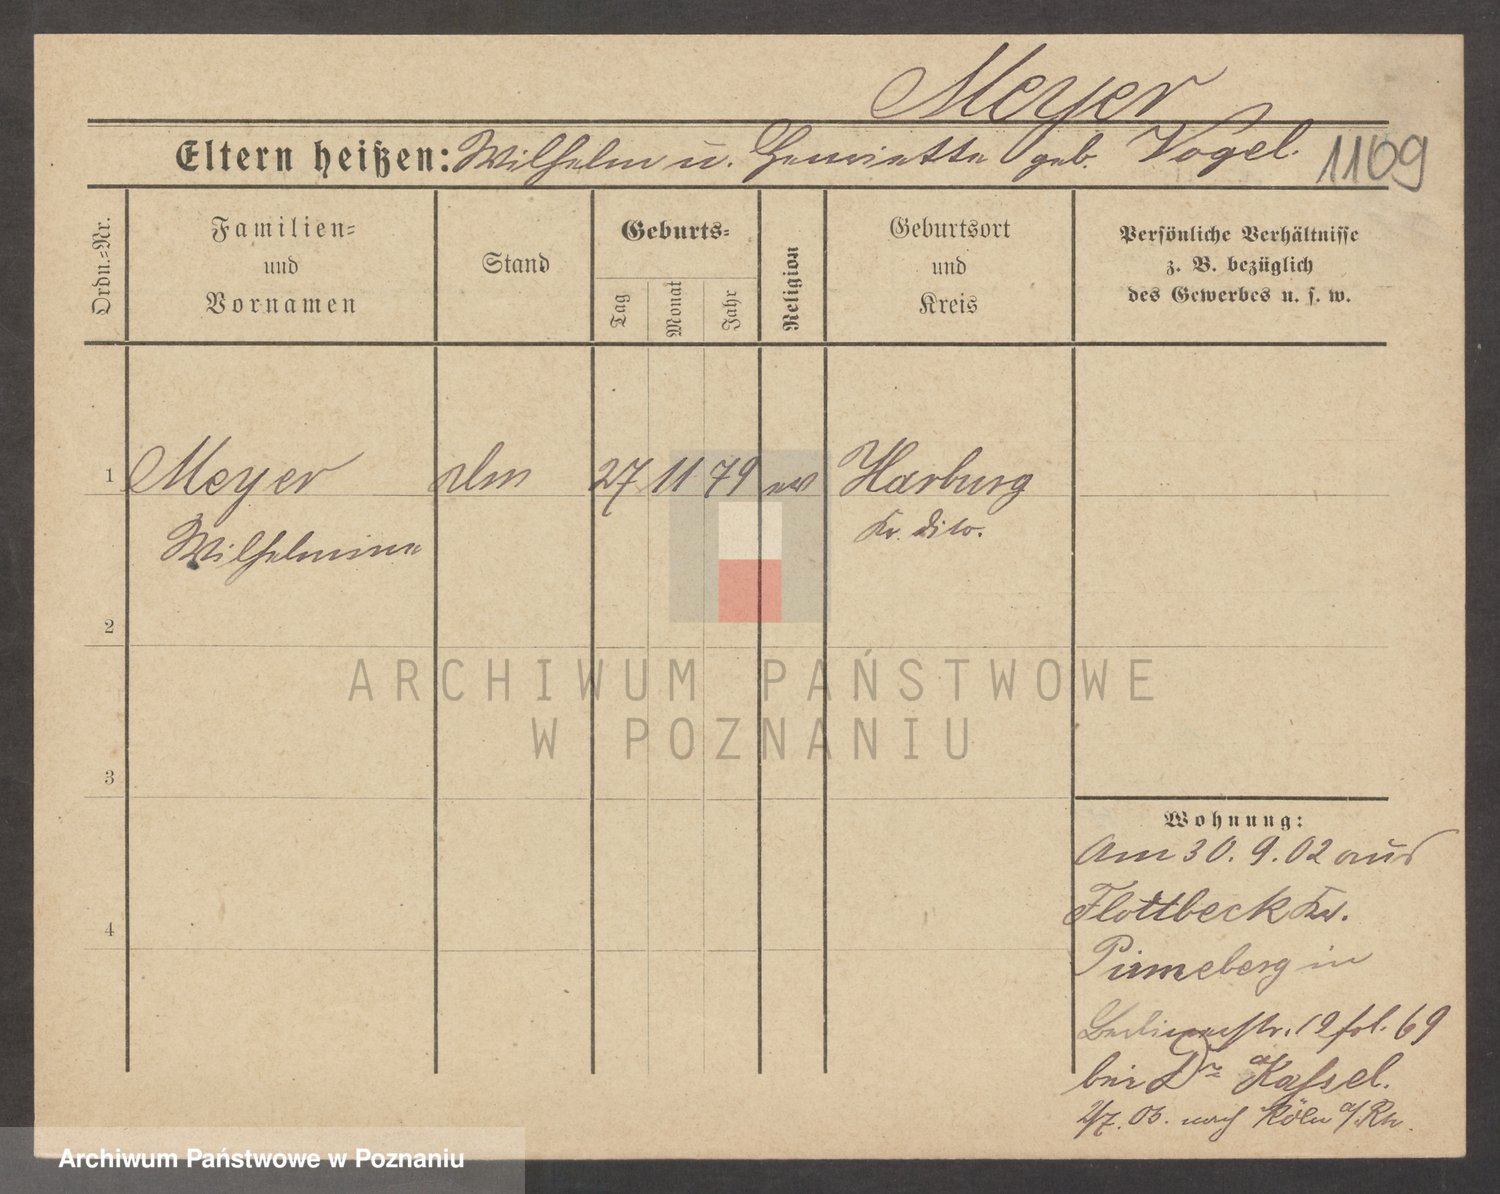 Meyer
Eltern heißen: Wilhelm u. Henriette geb. Vogel.
1109
Ordn.=Nr.
Familien=
und
Vornamen
Stand
Geburts=
Tag
Monat
Jahr
Religion
Geburtsort
und
Kreis
Persönliche Verhältnisse
z. B. bezüglich
des Gewerbes u. s. w.
1 Meyer 27 11 79 ev Harburg
Wilhelmine Kr. dito.
2
ARCHIWUM PAŃSTWOWE
W POZNANIU
3
Wohnung:
Am 30. 9. 02 aus
Flottbeck Kr.
4
Pinneberg in
Berlinerstr. 19 fol. 69
bei Dr Kassel.
2/7. 03. nach Köln a/Rh.
Archiwum Państwowe w Poznaniu